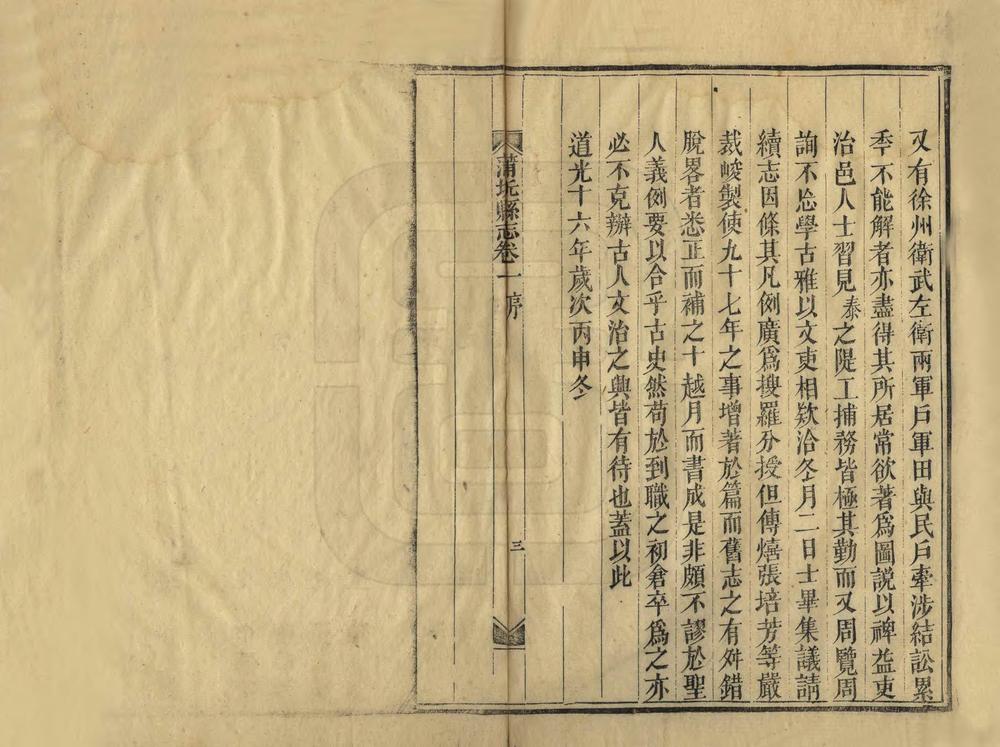 又有徐州衛武左衛兩軍戶軍田與民戶牽涉結訟累
年不能解者亦盡得其所居常欲著爲圖說以裨益吏
治邑人士習見泰之隄工捕務皆極其勤而又周覽周
詢不怠學古雅以文吏相欵洽冬月二日士畢集議請
續志因條其凡例廣爲搜羅分授但傳熺張培芳等嚴
裁峻製使九十七年之事增著於篇而舊志之有舛錯
脫畧者悉正而補之十越月而書成是非頗不謬於聖
人義例要以合乎古史然苟於到職之初倉卒爲之亦
必不克辦古人文治之興皆有待也蓋以此
道光十六年歲次丙申冬
蒲圻縣志卷一 序 三